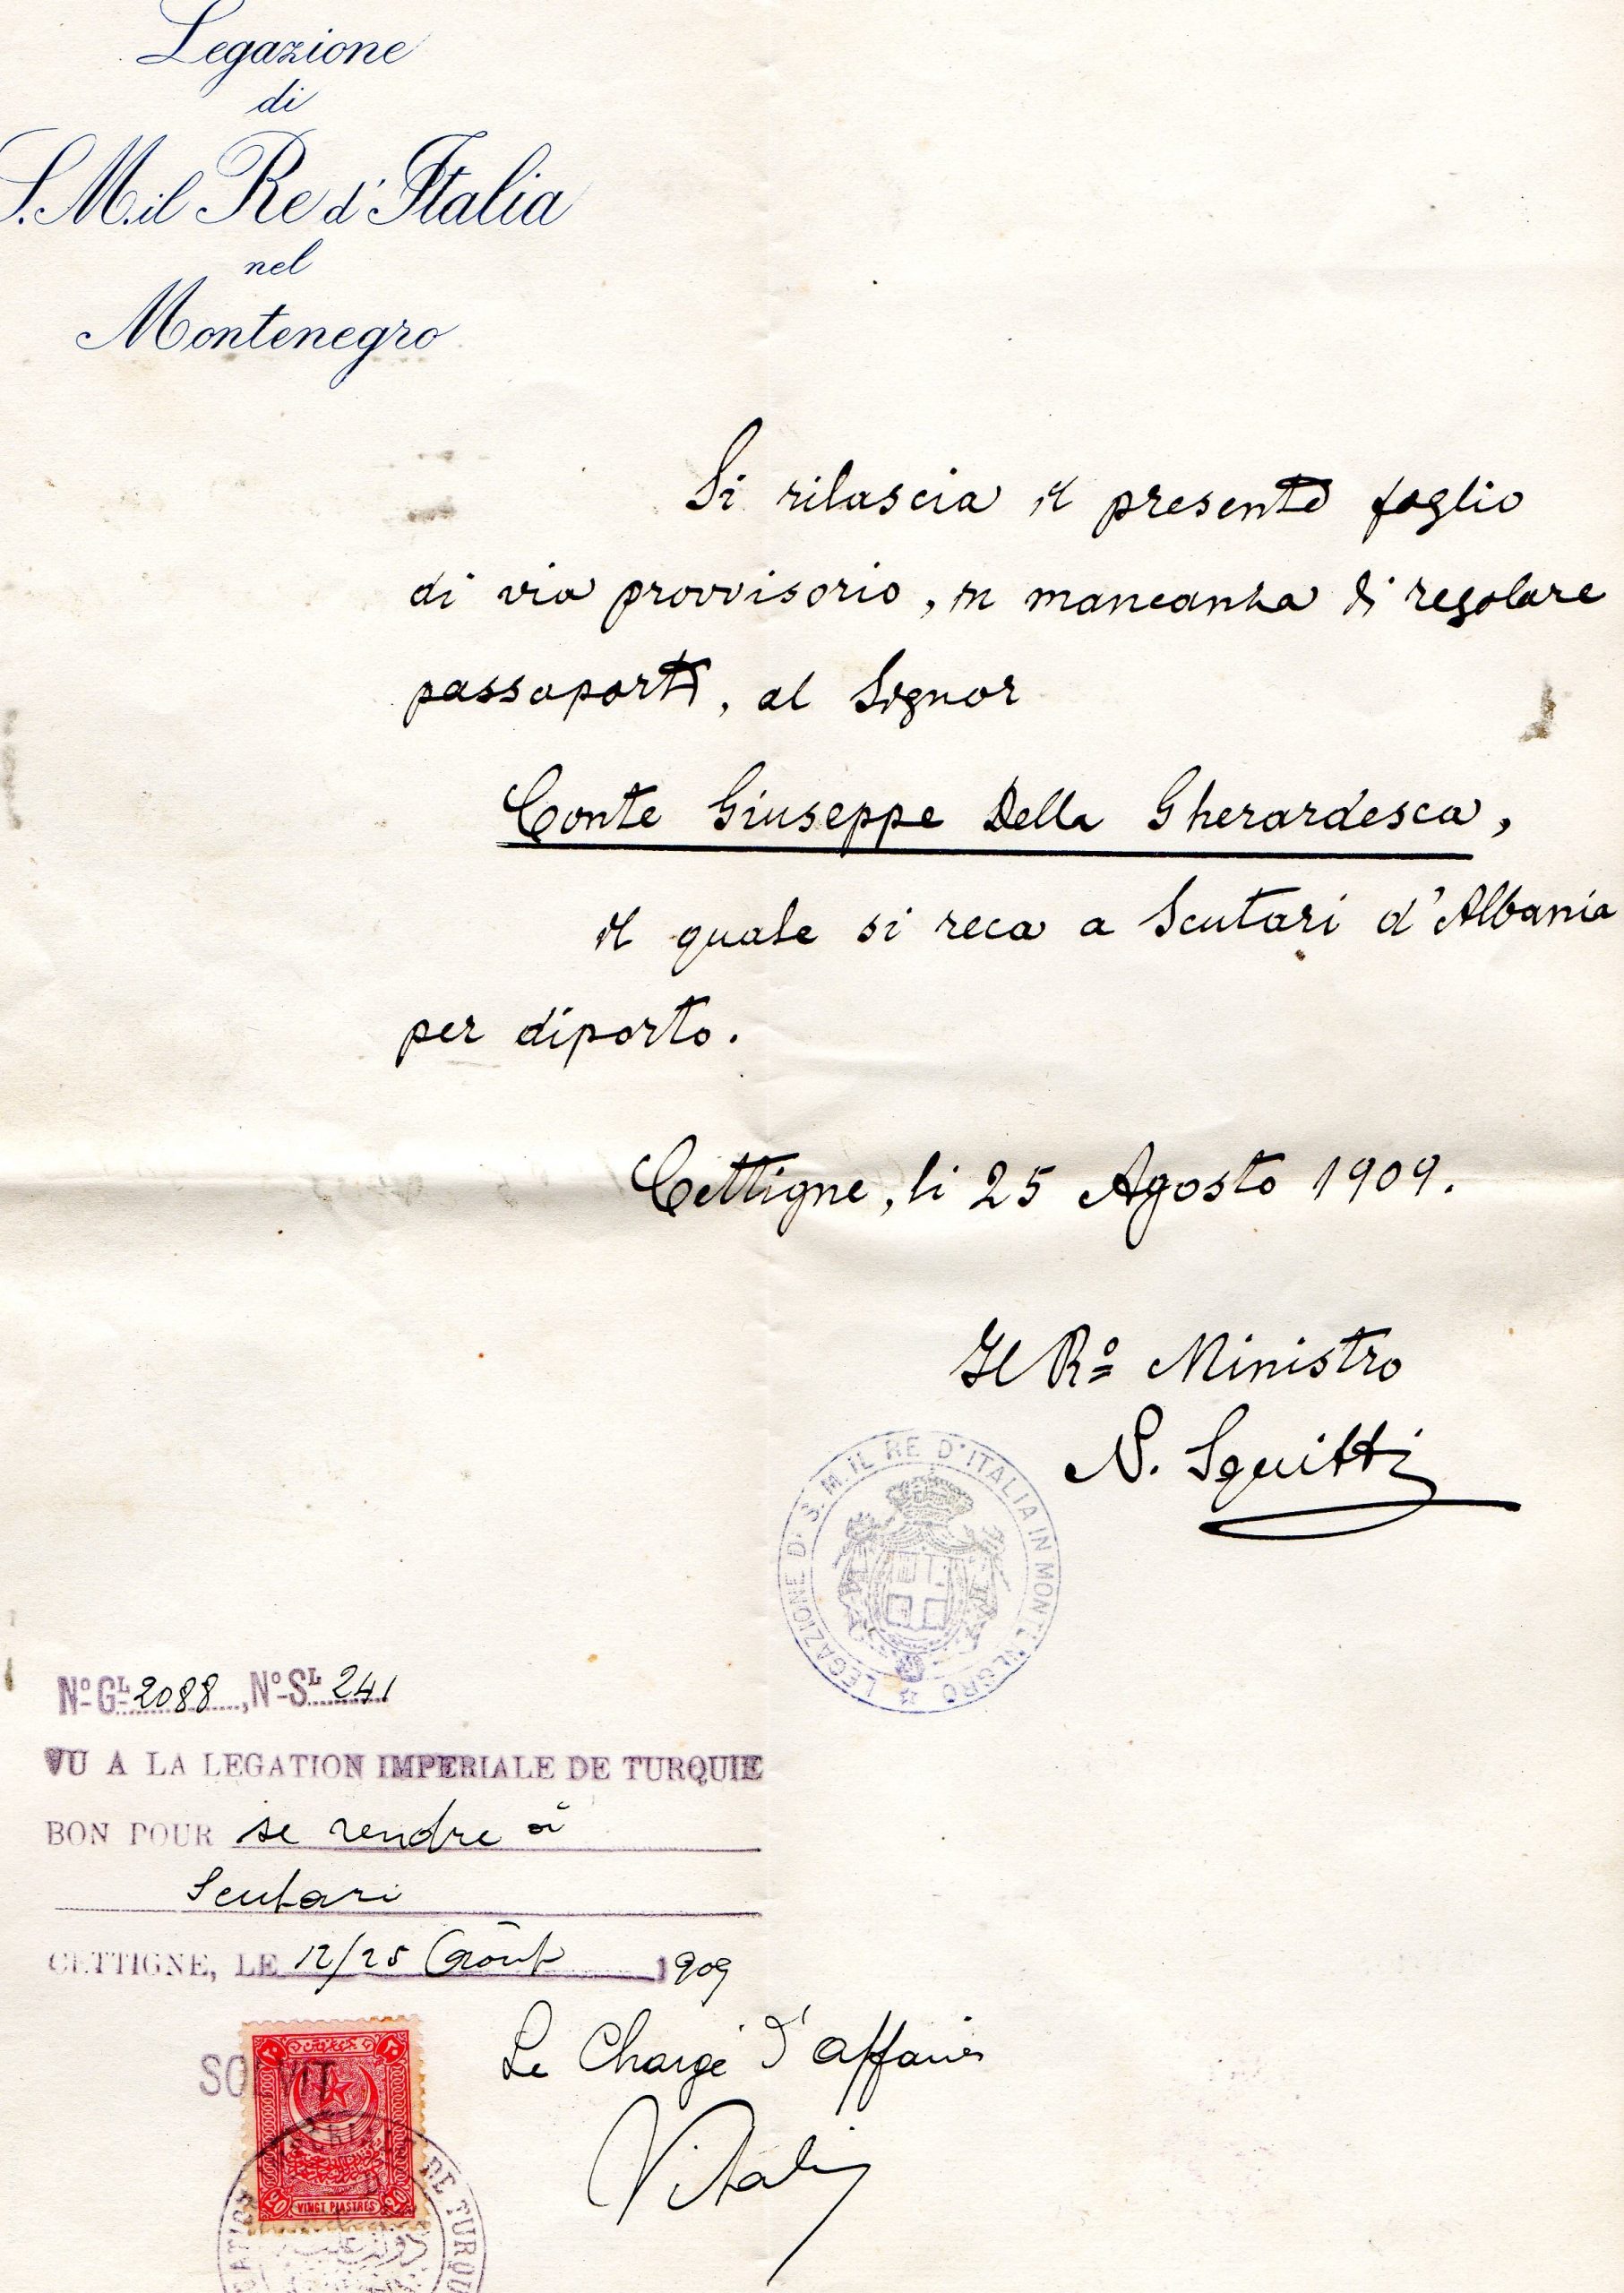 Legazione
di
S. M. il Re d'Italia
nel
Montenegro
Si rilascia il presente foglio
di via provvisorio, in mancanza di regolare
passaporto, al Signor
Conte Giuseppe Della Gherardesca,
il quale si reca a Scutari d'Albania
per diporto.
Cettigne, li 25 Agosto 1909.
Il Rº Ministro
N. Squitti
LEGAZIONE DI S. M. IL RE D'ITALIA IN MONTENEGRO
Nº Gᴸ 2088, Nº Sᴸ 241
VU A LA LEGATION IMPERIALE DE TURQUIE
BON POUR se rendre à
Scutari
CETTIGNE, LE 12/25 Août 1909
Le Chargé d'affaires
SOLVIT
VINGT PIASTRES
DE TURQU